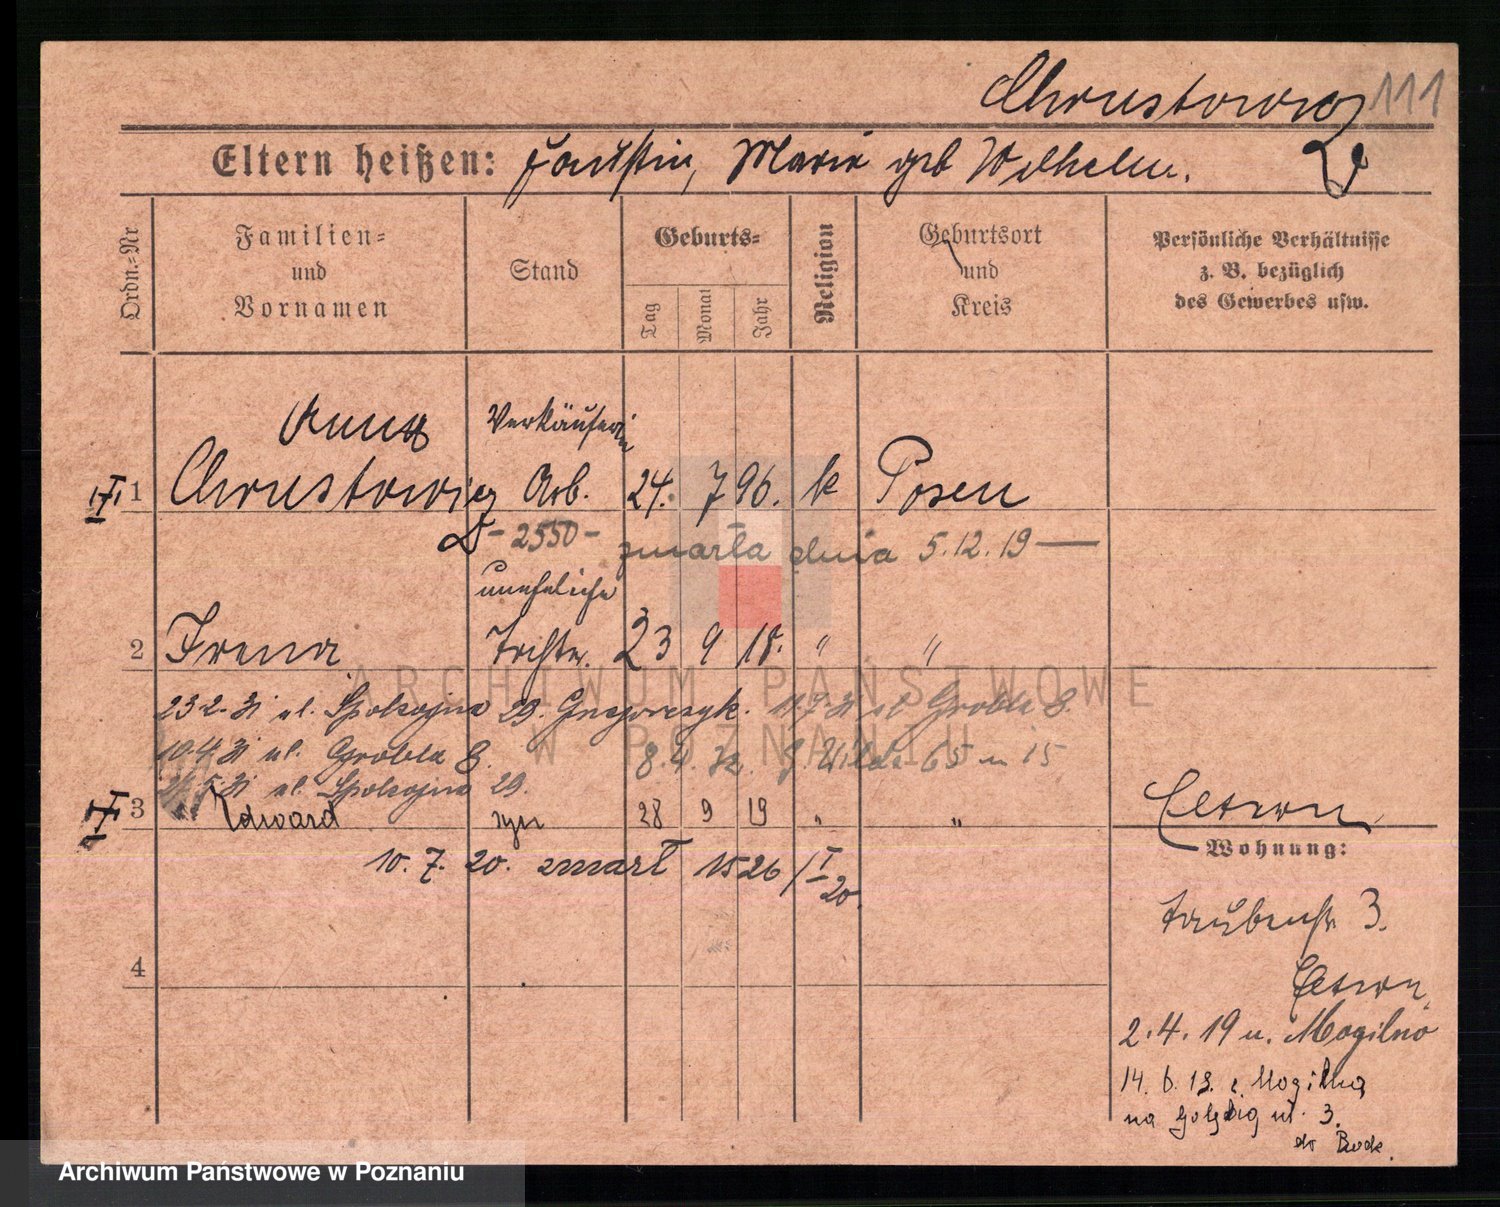 Chrustowicz 111
Eltern heißen: Faustin, Marie geb Wilhelm.
Ordn.-Nr
Familien-
und
Vornamen
Stand
Geburts-
Tag
Monat
Jahr
Religion
Geburtsort
und
Kreis
Persönliche Verhältnisse
z. B. bezüglich
des Gewerbes usw.
Anna Verkäuferin
1 Chrustowicz Arb. 24. 7 96. k Posen
- 2550 - zmarła dnia 5.12.19
uneheliche
2 Irena Tochter. 23 9 18. " "
23.2.31 ul. Spokojna 29. Grzgorczyk. ul Grobla 8
10.4.31 ul. Grobla 8. 8.4.32. G. Wilda 65 m 15
5.31 ul. Spokojna 29.
3 Edward syn 28 9 19 " "
10. 7. 20. zmarł 1526/I 20.
4
Eltern
Wohnung:
Taubenstr 3.
Eltern,
2.4.19 n. Mogilno
14. 6. 19. z Mogilna
na Gołębią ul. 3.
do Rodz.
ARCHIWUM PAŃSTWOWE
W POZNANIU
Archiwum Państwowe w Poznaniu